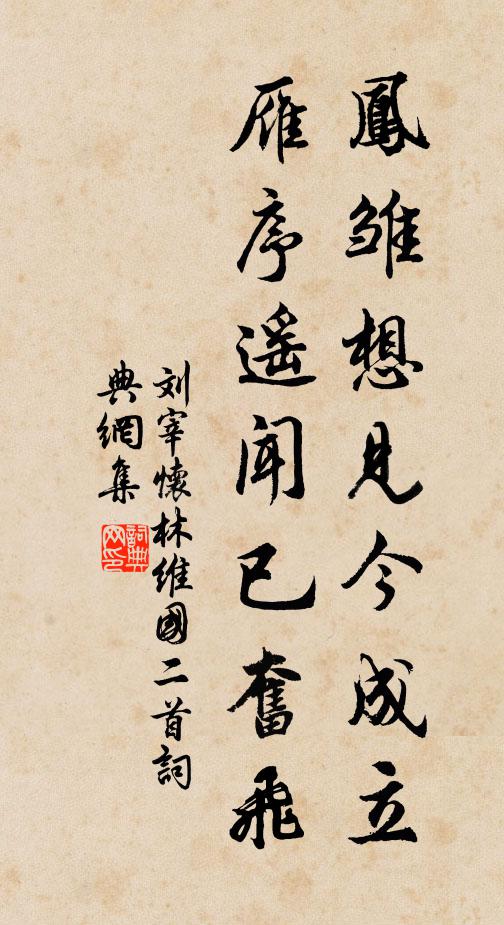 鳳雛想見今成立
雁序遥聞已奮飛
刘宰懷林維國二首詞
典網集
詞典
网印